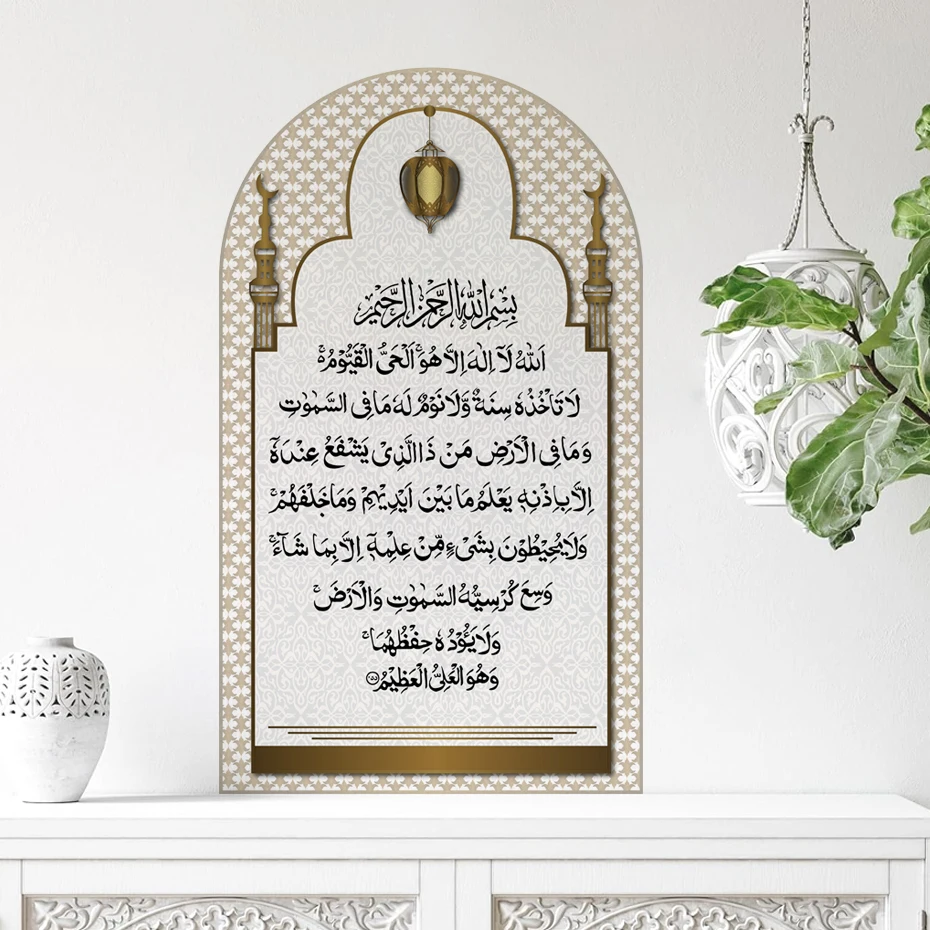 بِسْمِ اللّٰهِ الرَّحْمٰنِ الرَّحِيْمِ
اَللّٰهُ لَآ اِلٰهَ اِلَّا هُوَۚ اَلْحَيُّ الْقَيُّوْمُ ەۚ
لَا تَاْخُذُهٗ سِنَةٌ وَّلَا نَوْمٌ لَهٗ مَا فِى السَّمٰوٰتِ
وَمَا فِى الْاَرْضِ مَنْ ذَا الَّذِىْ يَشْفَعُ عِنْدَهٗٓ
اِلَّا بِاِذْنِهٖ يَعْلَمُ مَا بَيْنَ اَيْدِيْهِمْ وَمَا خَلْفَهُمْۚ
وَلَا يُحِيْطُوْنَ بِشَىْءٍ مِّنْ عِلْمِهٖٓ اِلَّا بِمَا شَآءَۚ
وَسِعَ كُرْسِيُّهُ السَّمٰوٰتِ وَالْاَرْضَۚ
وَلَا يَـُٔوْدُهٗ حِفْظُهُمَاۚ
وَهُوَ الْعَلِىُّ الْعَظِيْمُ ۝٢٥٥